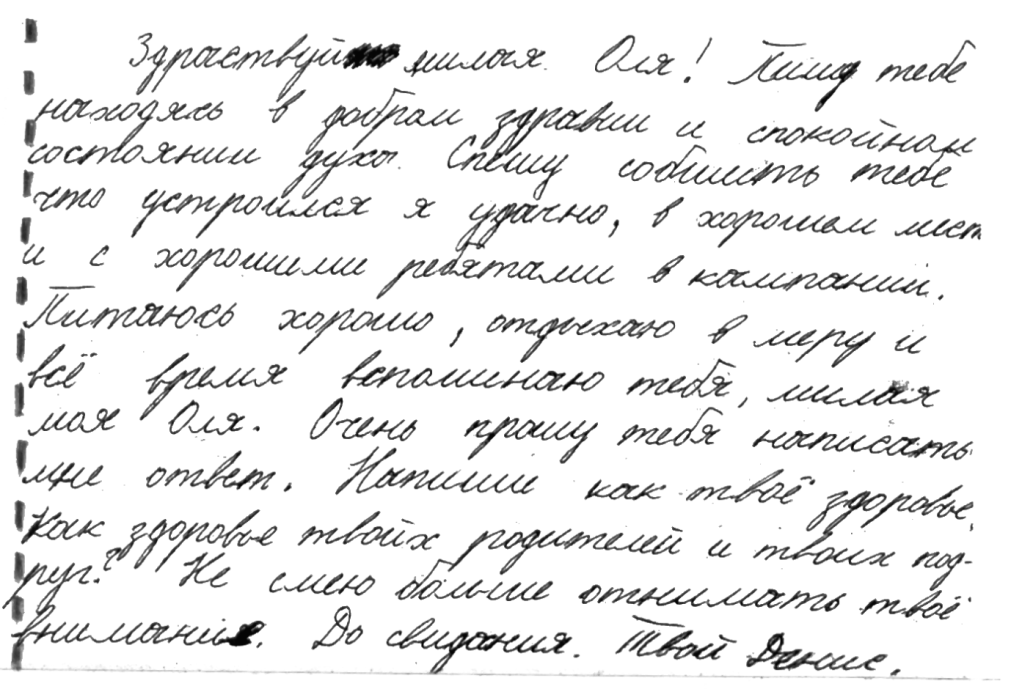 Здраствуй милая Оля! Пишу тебе
находясь в добром здравии и спокойном
состоянии духа. Спешу собшить тебе
что устроился я удачно, в хорошем мест
и с хорошими ребятами в кампании.
Питаюсь хорошо, отдыхаю в меру и
всё время вспоминаю тебя, милая
моя Оля. Очень прошу тебя написать
мне ответ. Напиши как твоё здоровье.
Как здоровье твоих родителей и твоих под-
руг? Не смею больше отнимать твоё
внимание. До свидания. Твой Денис.